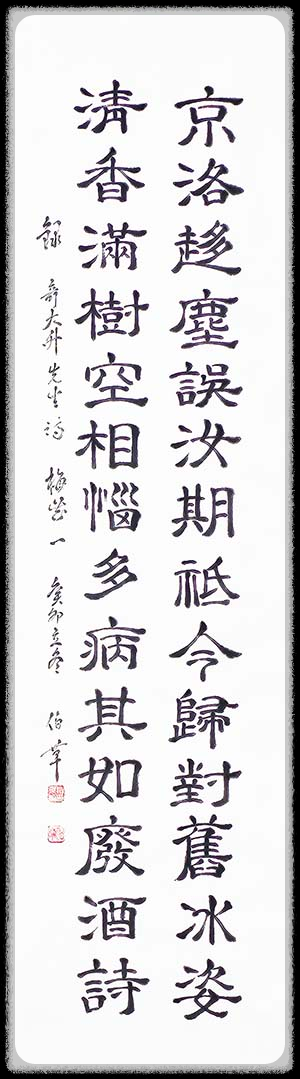 京洛趍塵誤汝期祗今歸對舊冰姿
清香滿樹空相惱多病其如廢酒詩
錄 奇大升先生詩 梅花一 癸卯立冬